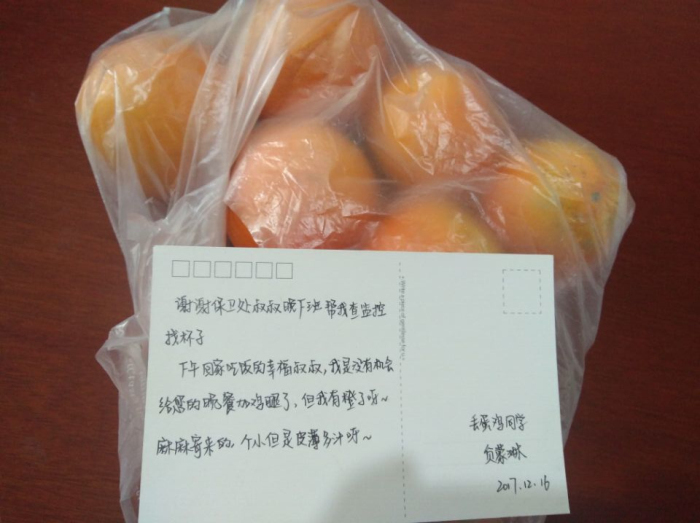 谢谢保卫处叔叔晚下班帮我查监控
找杯子
下午回家吃饭的幸福叔叔,我是没有机会
给您的晚餐加鸡腿了,但我有橙子呀~
麻麻寄来的,个小但是皮薄多汁呀~
丢蛋鸡同学
贠蒙琳
2017.12.16